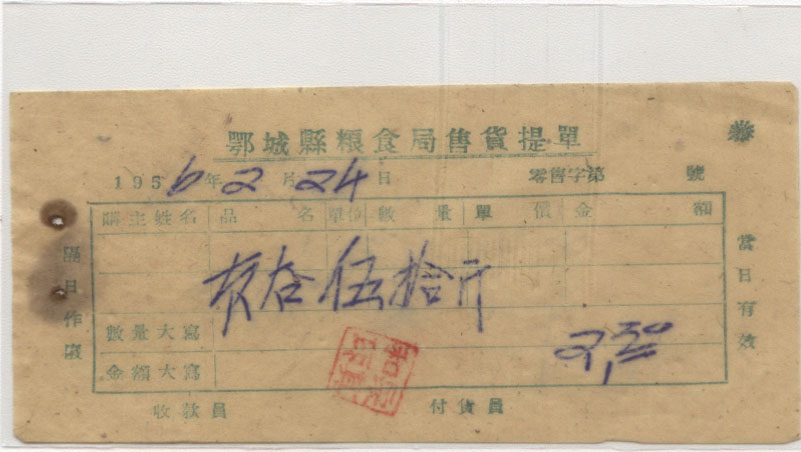 鄂城縣粮食局售貨提單
1956年2月24日 零售字第 號
購主姓名 品名 單位 數量 單價 金額
伍拾斤
數量大寫
2,30
金額大寫
收款員 付貨員
隔日作廢
當日有效